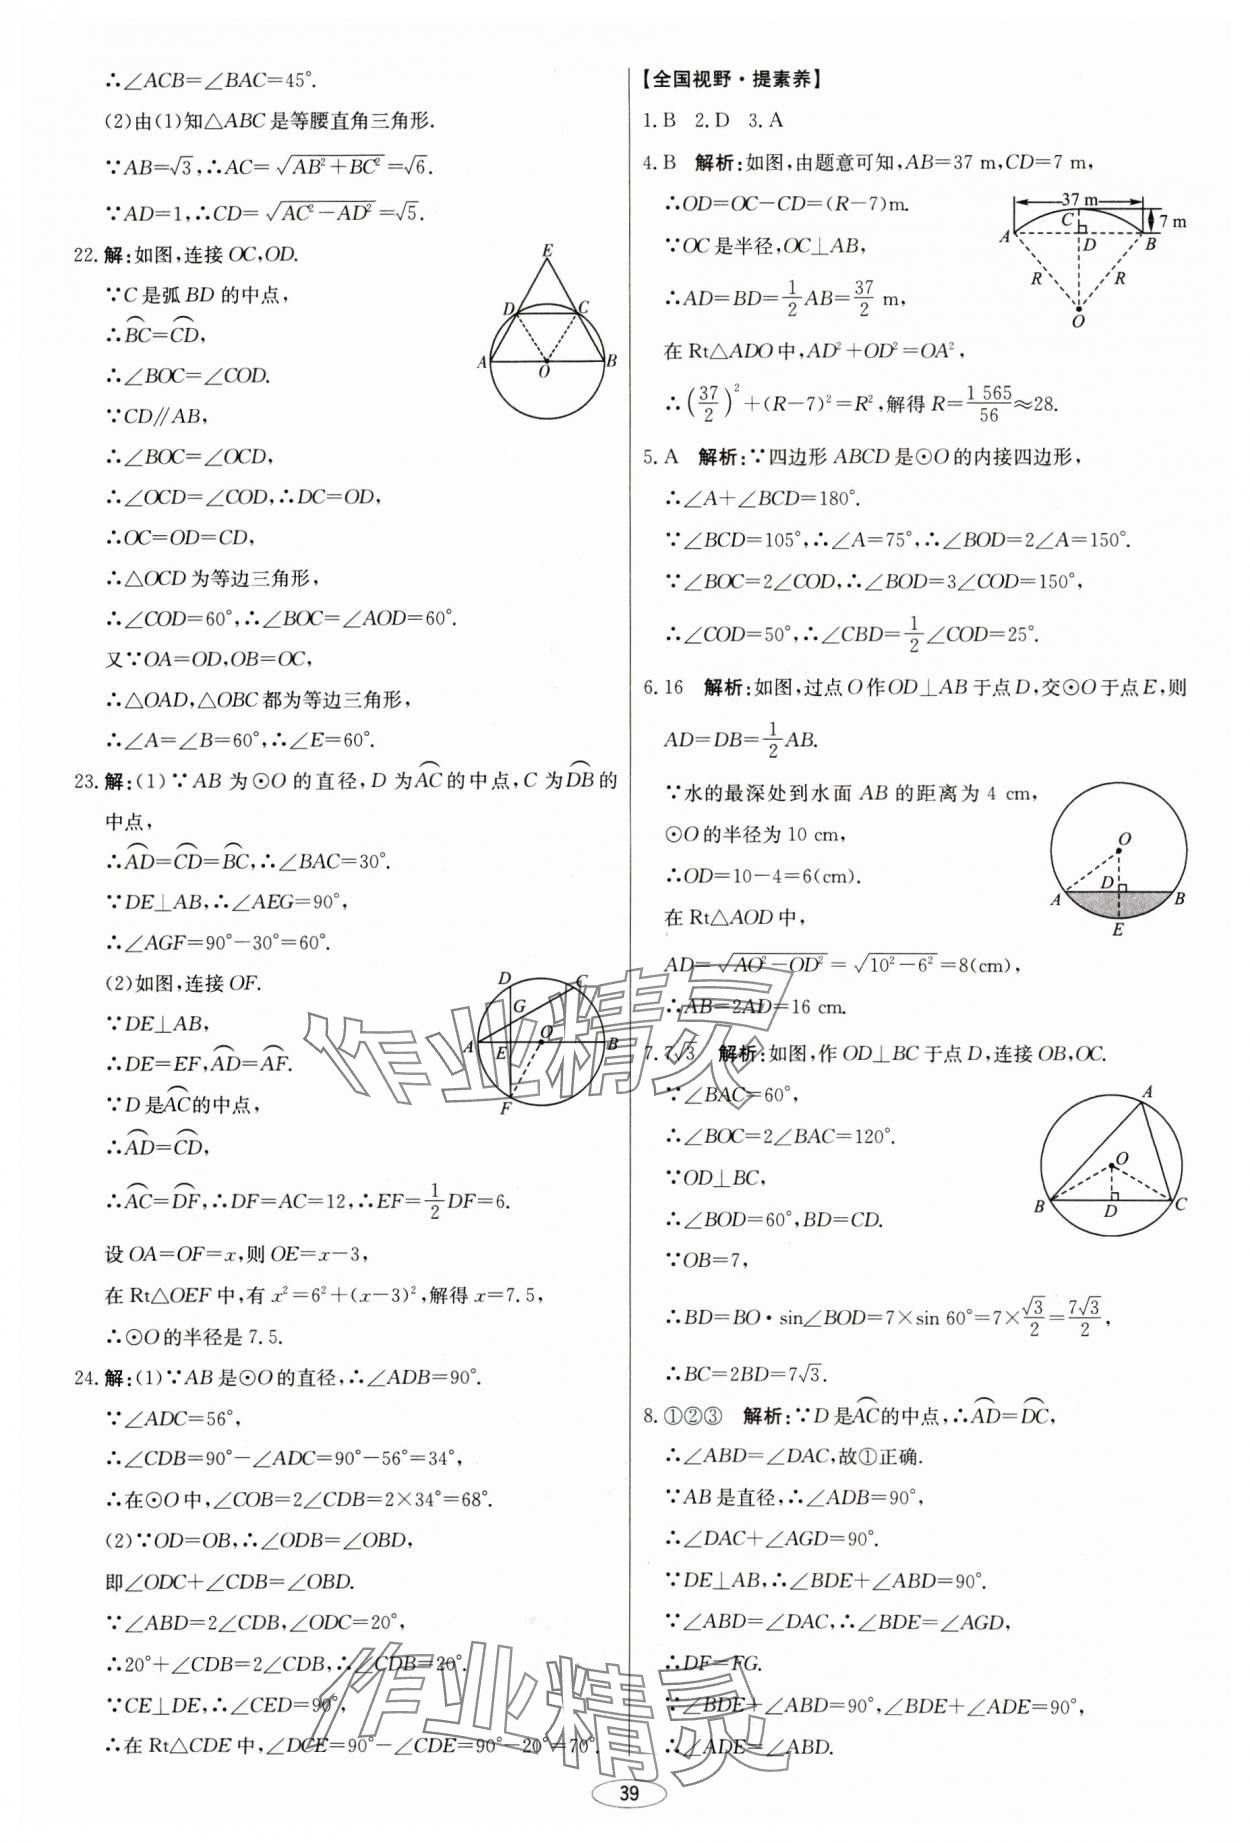 ∴∠ACB=∠BAC=45°.
(2)由(1)知△ABC是等腰直角三角形.
∵AB=√3,∴AC=√(AB²+BC²)=√6.
∵AD=1,∴CD=√(AC²-AD²)=√5.
22.解:如图,连接OC,OD.
∵C是弧BD的中点,
∴⌒BC=⌒CD,
∴∠BOC=∠COD.
∵CD∥AB,
∴∠BOC=∠OCD,
∴∠OCD=∠COD,∴DC=OD,
∴OC=OD=CD,
∴△OCD为等边三角形,
∴∠COD=60°,∴∠BOC=∠AOD=60°.
又∵OA=OD,OB=OC,
∴△OAD,△OBC都为等边三角形,
∴∠A=∠B=60°,∴∠E=60°.
E
D C
A O B
23.解:(1)∵AB为⊙O的直径,D为⌒AC的中点,C为⌒DB的
中点,
∴⌒AD=⌒CD=⌒BC,∴∠BAC=30°.
∵DE⊥AB,∴∠AEG=90°,
∴∠AGF=90°-30°=60°.
(2)如图,连接OF.
∵DE⊥AB,
∴DE=EF,⌒AD=⌒AF.
∵D是⌒AC的中点,
∴⌒AD=⌒CD,
∴⌒AC=⌒DF,∴DF=AC=12,∴EF=1/2DF=6.
设OA=OF=x,则OE=x-3,
在Rt△OEF中,有x²=6²+(x-3)²,解得x=7.5,
∴⊙O的半径是7.5.
D C
G
A E O B
F
24.解:(1)∵AB是⊙O的直径,∴∠ADB=90°.
∵∠ADC=56°,
∴∠CDB=90°-∠ADC=90°-56°=34°,
∴在⊙O中,∠COB=2∠CDB=2×34°=68°.
(2)∵OD=OB,∴∠ODB=∠OBD,
即∠ODC+∠CDB=∠OBD.
∵∠ABD=2∠CDB,∠ODC=20°,
∴20°+∠CDB=2∠CDB,∴∠CDB=20°.
∵CE⊥DE,∴∠CED=90°,
∴在Rt△CDE中,∠DCE=90°-∠CDE=90°-20°=70°.
【全国视野·提素养】
1.B 2.D 3.A
4.B 解析:如图,由题意可知,AB=37 m,CD=7 m,
∴OD=OC-CD=(R-7)m.
∵OC是半径,OC⊥AB,
∴AD=BD=1/2AB=37/2 m,
在Rt△ADO中,AD²+OD²=OA²,
∴(37/2)²+(R-7)²=R²,解得R=1 565/56≈28.
37 m
C 7 m
A D B
R R
O
5.A 解析:∵四边形ABCD是⊙O的内接四边形,
∴∠A+∠BCD=180°.
∵∠BCD=105°,∴∠A=75°,∴∠BOD=2∠A=150°.
∵∠BOC=2∠COD,∴∠BOD=3∠COD=150°,
∴∠COD=50°,∴∠CBD=1/2∠COD=25°.
6.16 解析:如图,过点O作OD⊥AB于点D,交⊙O于点E,则
AD=DB=1/2AB.
∵水的最深处到水面AB的距离为4 cm,
⊙O的半径为10 cm,
∴OD=10-4=6(cm).
在Rt△AOD中,
AD=√(AO²-OD²)=√(10²-6²)=8(cm),
∴AB=2AD=16 cm.
O
A D B
E
7.7√3 解析:如图,作OD⊥BC于点D,连接OB,OC.
∵∠BAC=60°,
∴∠BOC=2∠BAC=120°.
∵OD⊥BC,
∴∠BOD=60°,BD=CD.
∵OB=7,
∴BD=BO·sin∠BOD=7×sin 60°=7×√3/2=7√3/2,
∴BC=2BD=7√3.
A
O
B D C
8.①②③ 解析:∵D是⌒AC的中点,∴⌒AD=⌒DC,
∴∠ABD=∠DAC,故①正确.
∵AB是直径,∴∠ADB=90°,
∴∠DAC+∠AGD=90°.
∵DE⊥AB,∴∠BDE+∠ABD=90°.
∵∠ABD=∠DAC,∴∠BDE=∠AGD,
∴DF=FG.
∵∠BDE+∠ABD=90°,∠BDE+∠ADE=90°,
∴∠ADE=∠ABD.
作业精灵
作业精灵
39